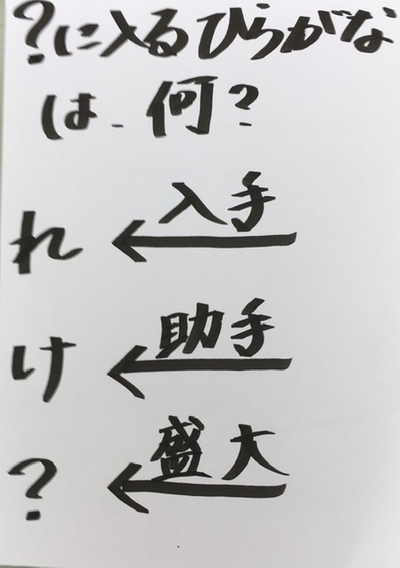 ?に入るひらがな
は、何?
入手
れ ←
助手
け ←
盛大
? ←